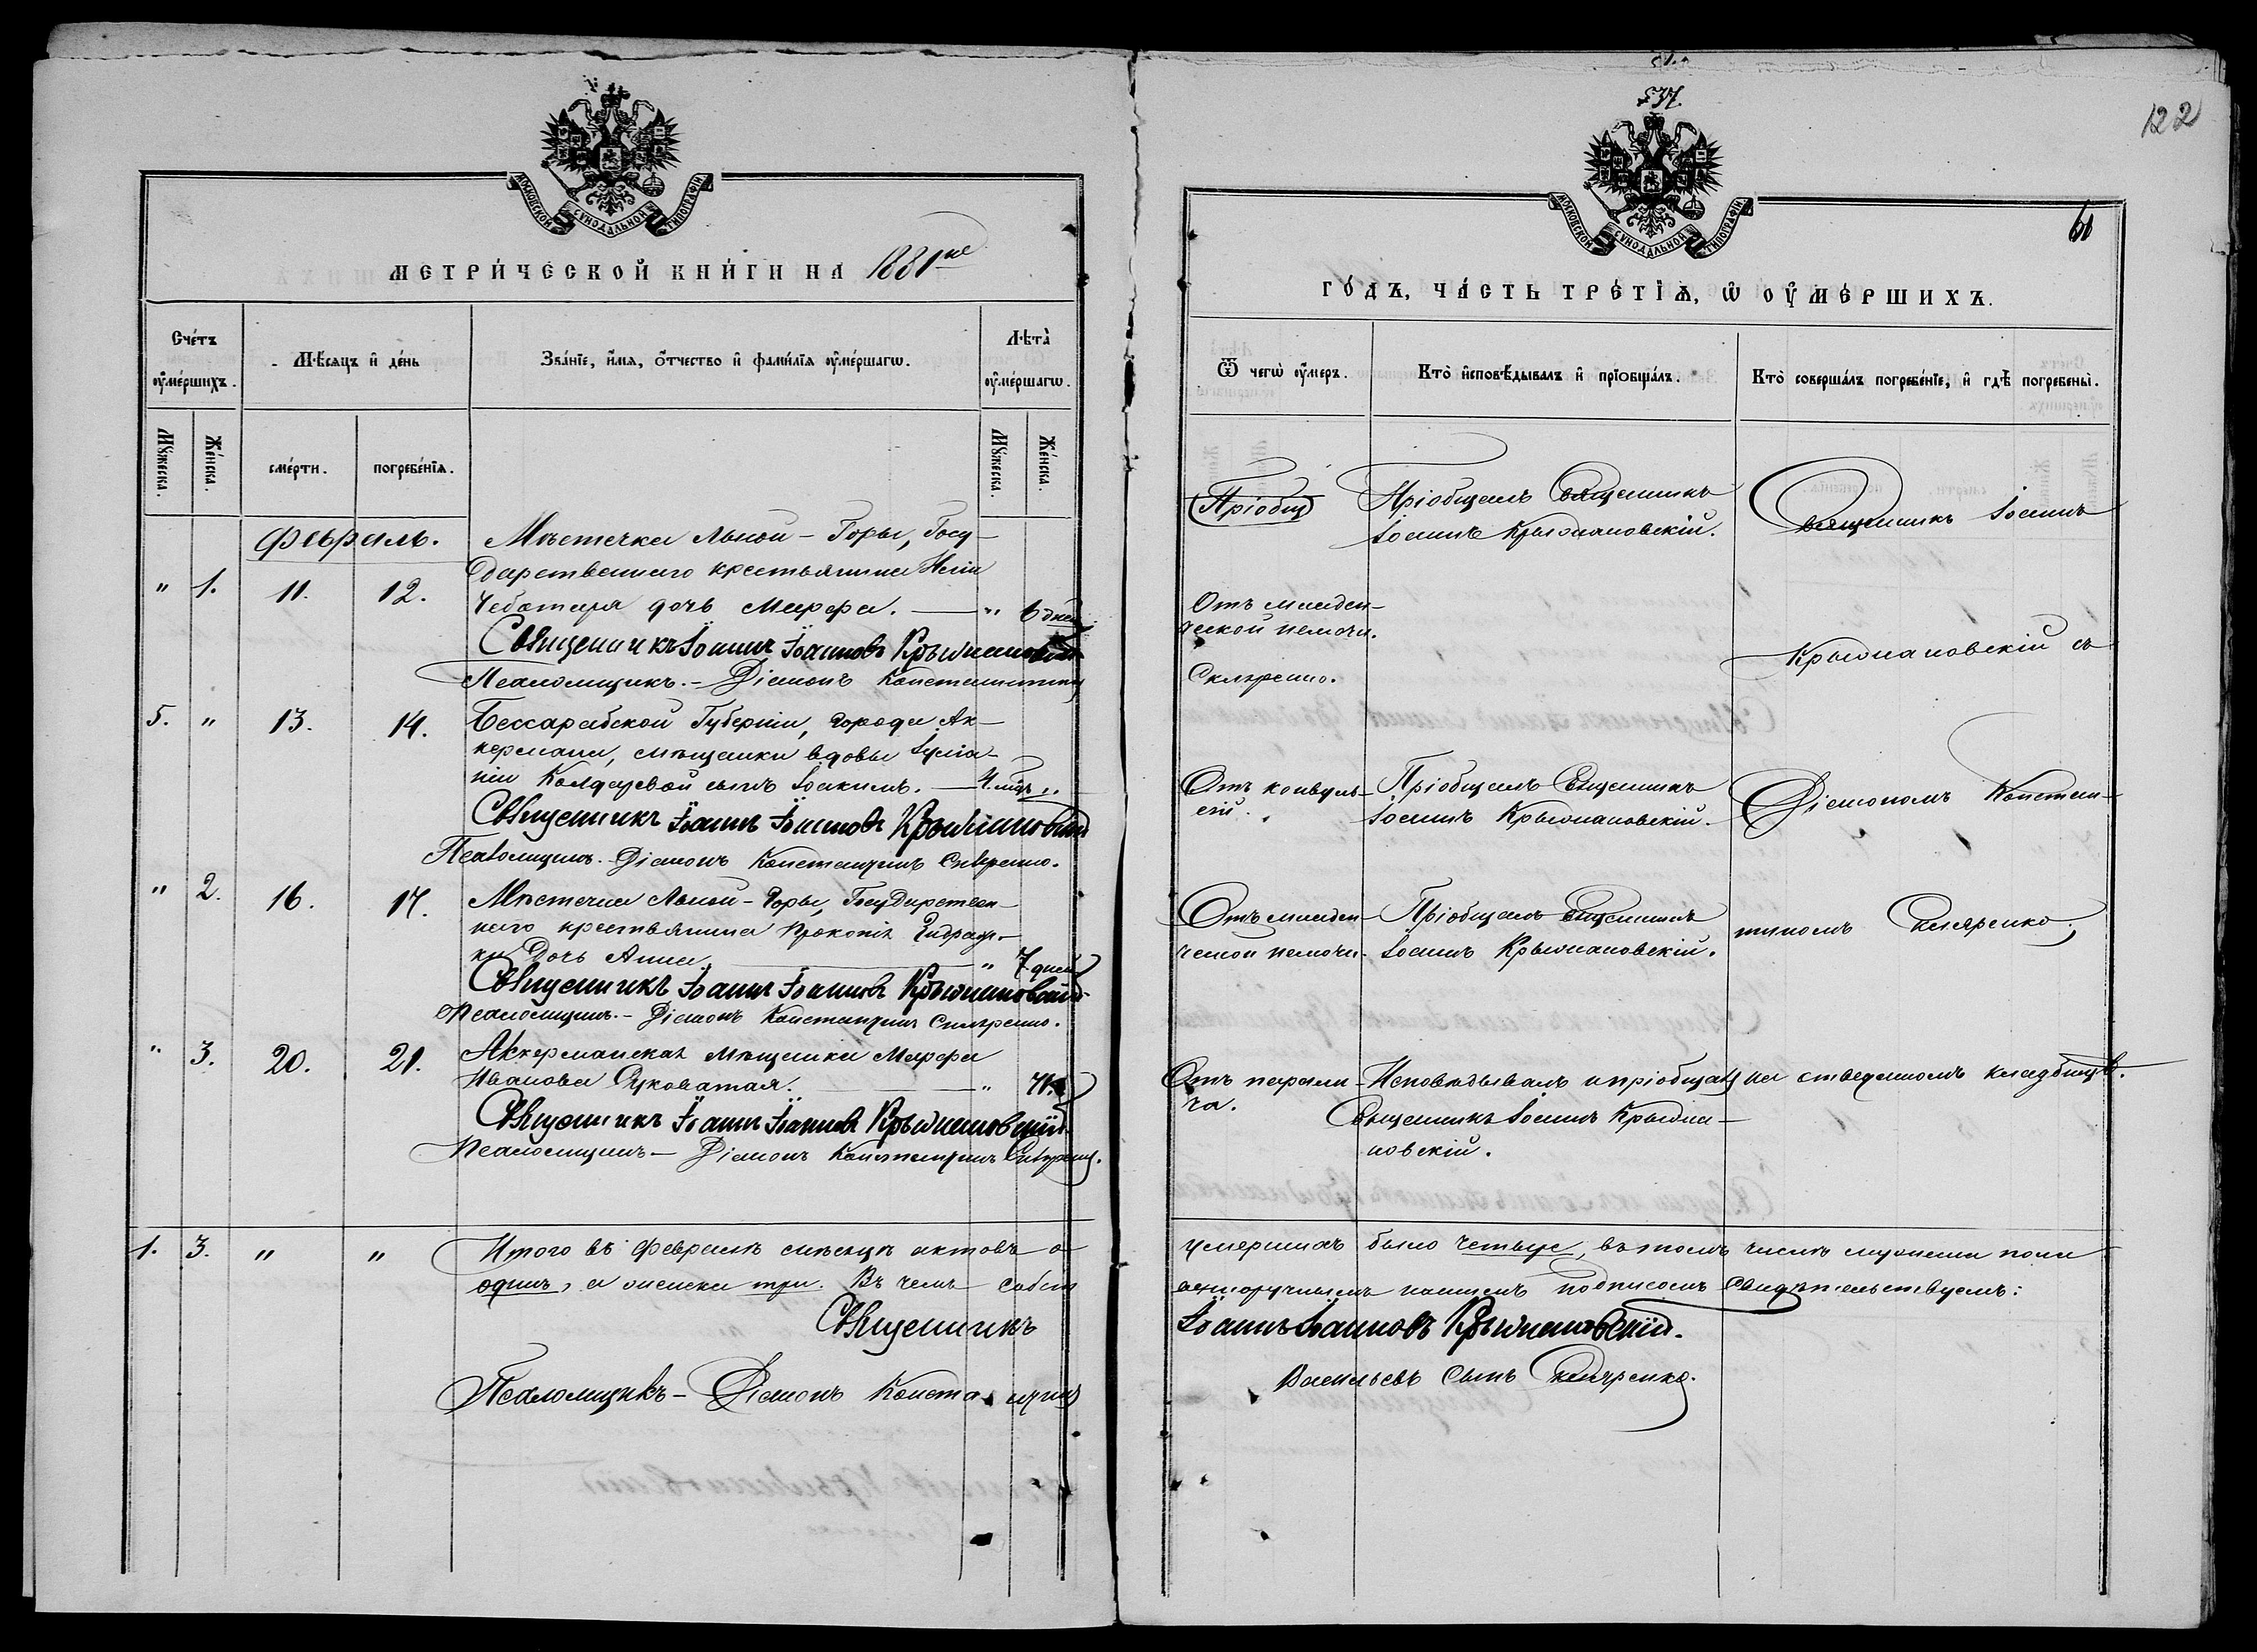 МОСКОВСКОЙ СУНОДАЛЬНОЙ ТИПОГРАФІИ
МЕТРИ́ЧЕСКОЙ КНИ́ГИ НА 1881ый
Сче́тъ оу҆ме́ршихъ.
Мѣ́сяцъ и҆ де́нь
Зва́нїе, и҆́мя, ѻ҆́тчество и҆ фами́лїя оу҆ме́ршагѡ.
Лѣта̀ оу҆ме́ршагѡ.
Мꙋ́жеска.
Же́нска.
сме́рти.
погребе́нїя.
Мꙋ́жеска.
Же́нска.
Февраль.
Мѣстечка Ясной-Горы, Госу-
" 1. 11. 12.
дарственнаго крестьянина Иліи
Чеботаря дочь Марфа. — " 6 дней
Священникъ Іоаннъ Іоанновъ Крыжановскій
Псаломщикъ. – Діаконъ Константинъ
5. " 13. 14.
Бессарабской Губерніи, города Ак-
кермана, мѣщанки вдовы Іуліа-
ніи сынъ Іоакимъ. — 4. мѣс. "
Священникъ Іоаннъ Іоанновъ Крыжановскій
Псаломщикъ. Діаконъ Константинъ Скляренко.
" 2. 16. 17.
Мѣстечка Ясной-Горы, Государствен-
наго крестьянина Прокопія
ки дочь Анна. — " 7 дней
Священникъ Іоаннъ Іоанновъ Крыжановскій
Псаломщикъ. – Діаконъ Константинъ Скляренко.
" 3. 20. 21.
Аккерманская мѣщанка Марфа
Иванова — "
Священникъ Іоаннъ Іоанновъ Крыжановскій
Псаломщикъ – Діаконъ Константинъ Скляренко.
1. 3. " "
Итого въ Февралѣ мѣсяцѣ актовъ о
одинъ, а женска три. Въ чемъ собст
Священникъ
Псаломщикъ – Діаконъ Константинъ
537.
122
МОСКОВСКОЙ СУНОДАЛЬНОЙ ТИПОГРАФІИ
61
ГО́ДЪ, ЧА́СТЬ ТРЕ́ТЇѦ, Ѡ҆ ОУ҆МЕ́РШИХЪ.
Ѿ чегѡ̀ оу҆́меръ.
Кто̀ и҆сповѣ́дывалъ и҆ прїѻбща́лъ.
Кто̀ соверша́лъ погребе́нїе, и҆ гдѣ̀ погребены̀.
Пріобщ
Пріобщалъ Священникъ
Іоаннъ Крыжановскій.
Священникъ Іоаннъ
Отъ младен-
ческой немочи.
Скляренко.
Крыжановскій съ
Отъ конвуль-
сій.
Пріобщалъ Священникъ
Іоаннъ Крыжановскій.
Діакономъ Констан-
Отъ младен-
ческой немочи.
Пріобщалъ Священникъ
Іоаннъ Крыжановскій.
тиномъ Скляренко,
Отъ парали-
ча.
Исповѣдывалъ и пріобщалъ
Священникъ Іоаннъ Крыжа-
новскій.
на отведенномъ кладбищѣ.
умершихъ было четыре, въ томъ числѣ мужеска пола
венноручнымъ нашимъ подписомъ Свидѣтельствуемъ:
Іоаннъ Іоанновъ Крыжановскій.
Васильевъ Сынъ Скляренко.